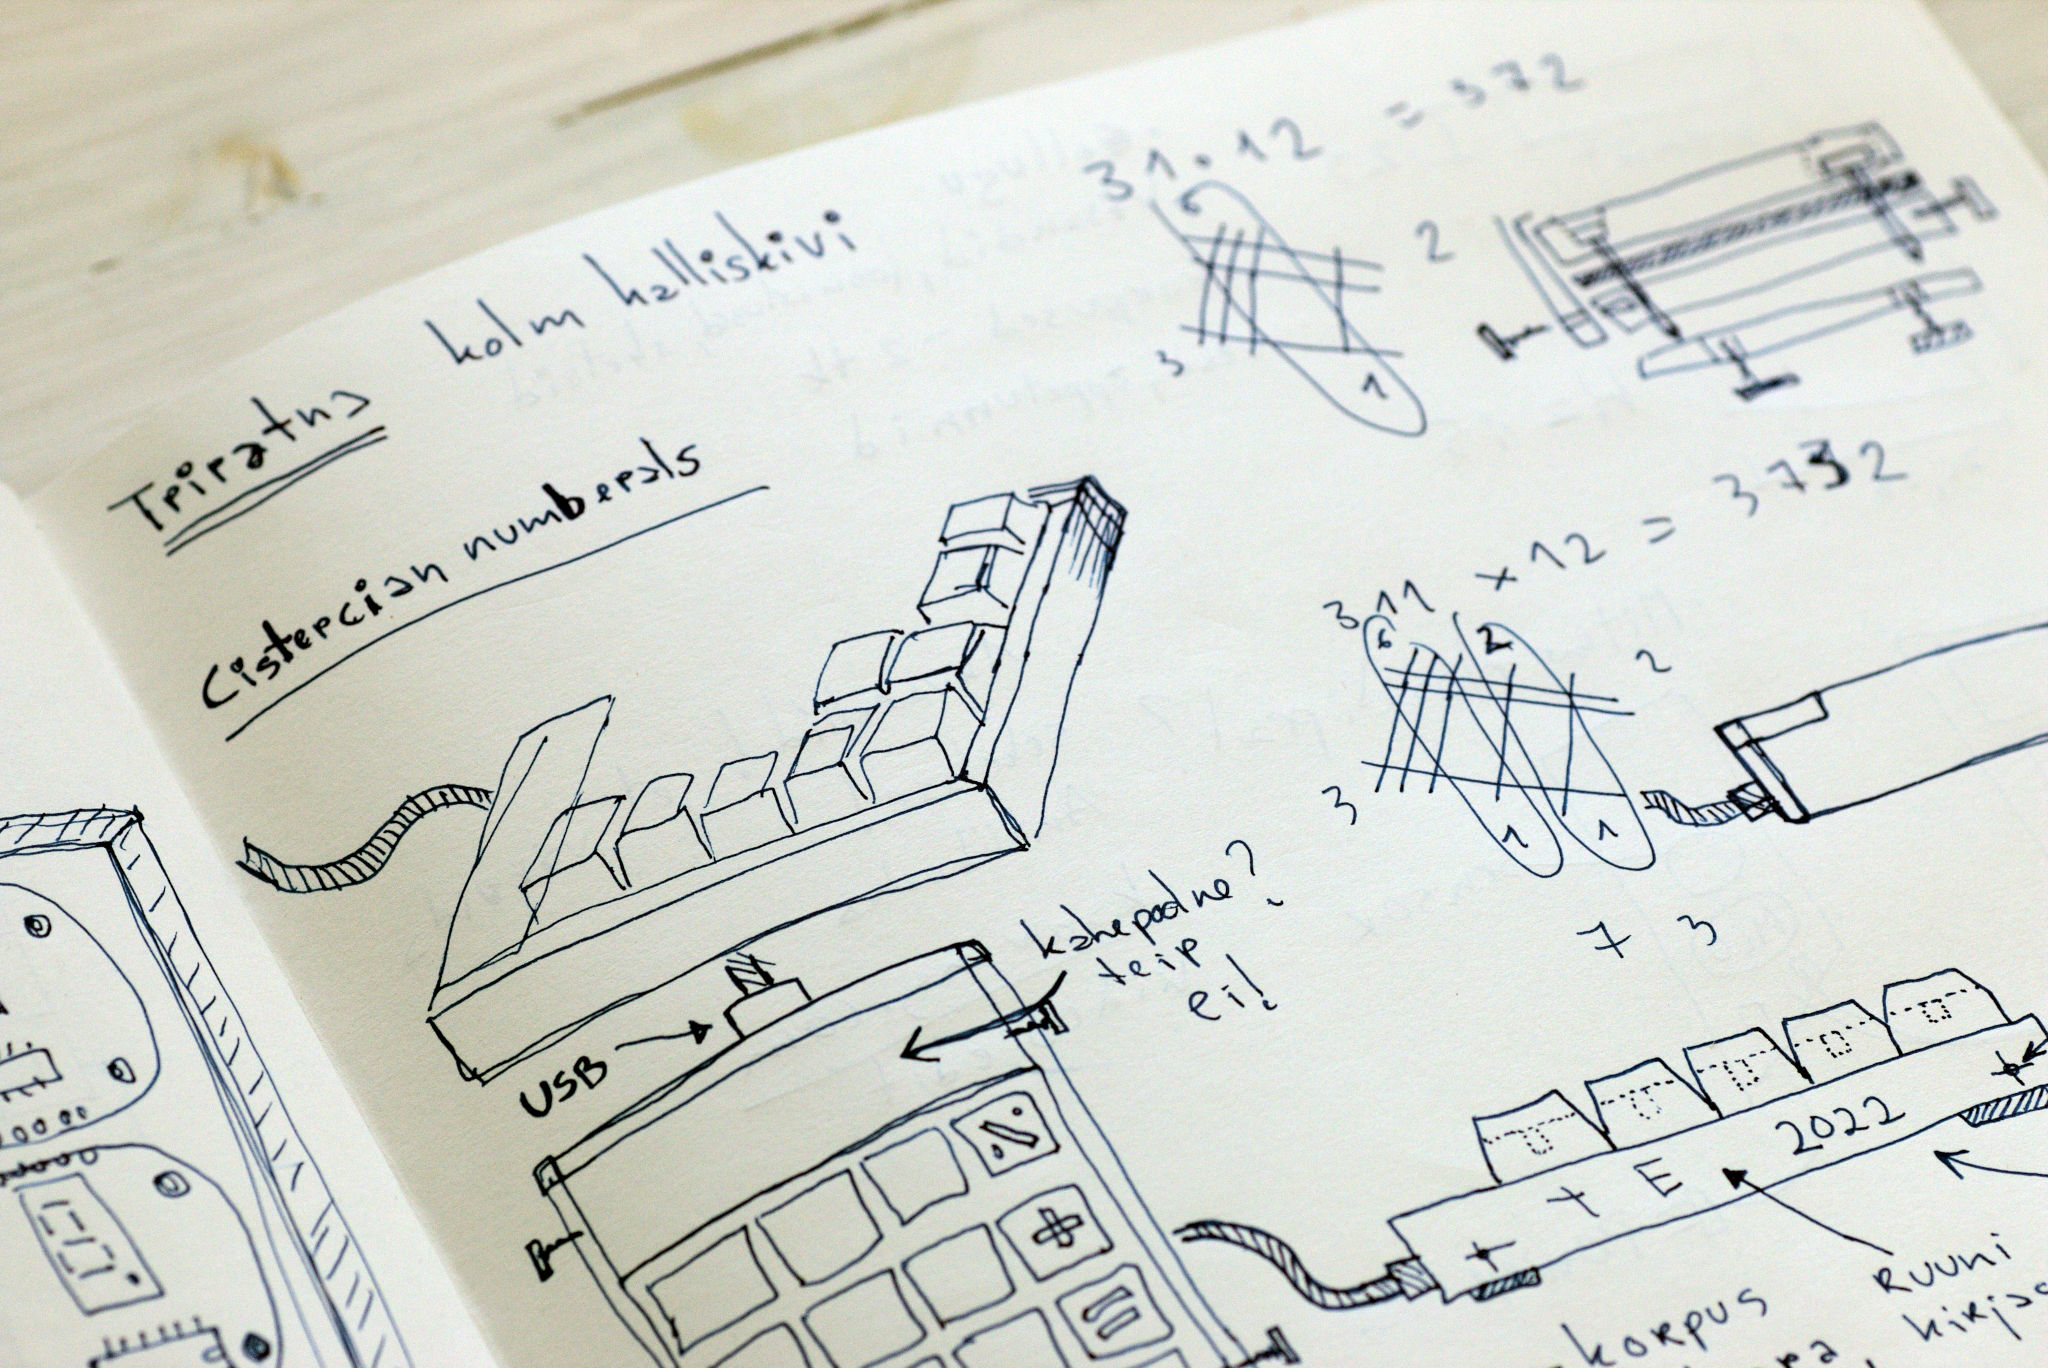 Tripatna kolm halliskivi
Cistercian numberals
31 · 12 = 372
6
2
3
1
311 × 12 = 3732
6 2
2
3
1 1
7 3
kahepoolne?
teip
ei!
USB
2022
Y E
RUUNI
korpus